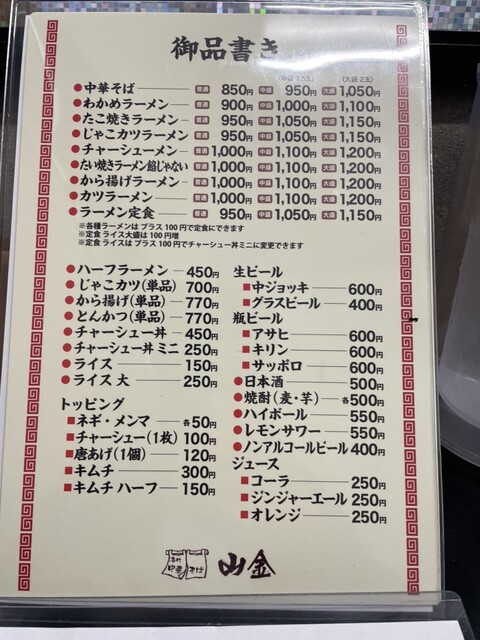 御品書き
(中盛 1.5玉) (大盛 2玉)
●中華そば 普通 850円 中盛 950円 大盛 1,050円
●わかめラーメン 普通 900円 中盛 1,000円 大盛 1,100円
●たこ焼きラーメン 普通 950円 中盛 1,050円 大盛 1,150円
●じゃこカツラーメン 普通 950円 中盛 1,050円 大盛 1,150円
●チャーシューメン 普通 1,000円 中盛 1,100円 大盛 1,200円
●たい焼きラーメン 餡じゃない 普通 1,000円 中盛 1,100円 大盛 1,200円
●から揚げラーメン 普通 1,000円 中盛 1,100円 大盛 1,200円
●カツラーメン 普通 1,000円 中盛 1,100円 大盛 1,200円
●ラーメン定食 普通 950円 中盛 1,050円 大盛 1,150円
※各種ラーメンは プラス 100円で定食にできます
※定食 ライス大盛は 100円増
※定食 ライスは プラス 100円でチャーシュー丼ミニに変更できます
●ハーフラーメン 450円
●じゃこカツ(単品) 700円
●から揚げ(単品) 770円
●とんかつ(単品) 770円
●チャーシュー丼 450円
●チャーシュー丼 ミニ 250円
●ライス 150円
●ライス 大 250円
トッピング
■ネギ・メンマ 各50円
■チャーシュー(1枚) 100円
■唐あげ(1個) 120円
■キムチ 300円
■キムチ ハーフ 150円
生ビール
■中ジョッキ 600円
■グラスビール 400円
瓶ビール
■アサヒ 600円
■キリン 600円
■サッポロ 600円
●日本酒 500円
●焼酎(麦・芋) 各500円
●ハイボール 550円
●レモンサワー 550円
●ノンアルコールビール 400円
ジュース
■コーラ 250円
■ジンジャーエール 250円
■オレンジ 250円
中華 そば 山金